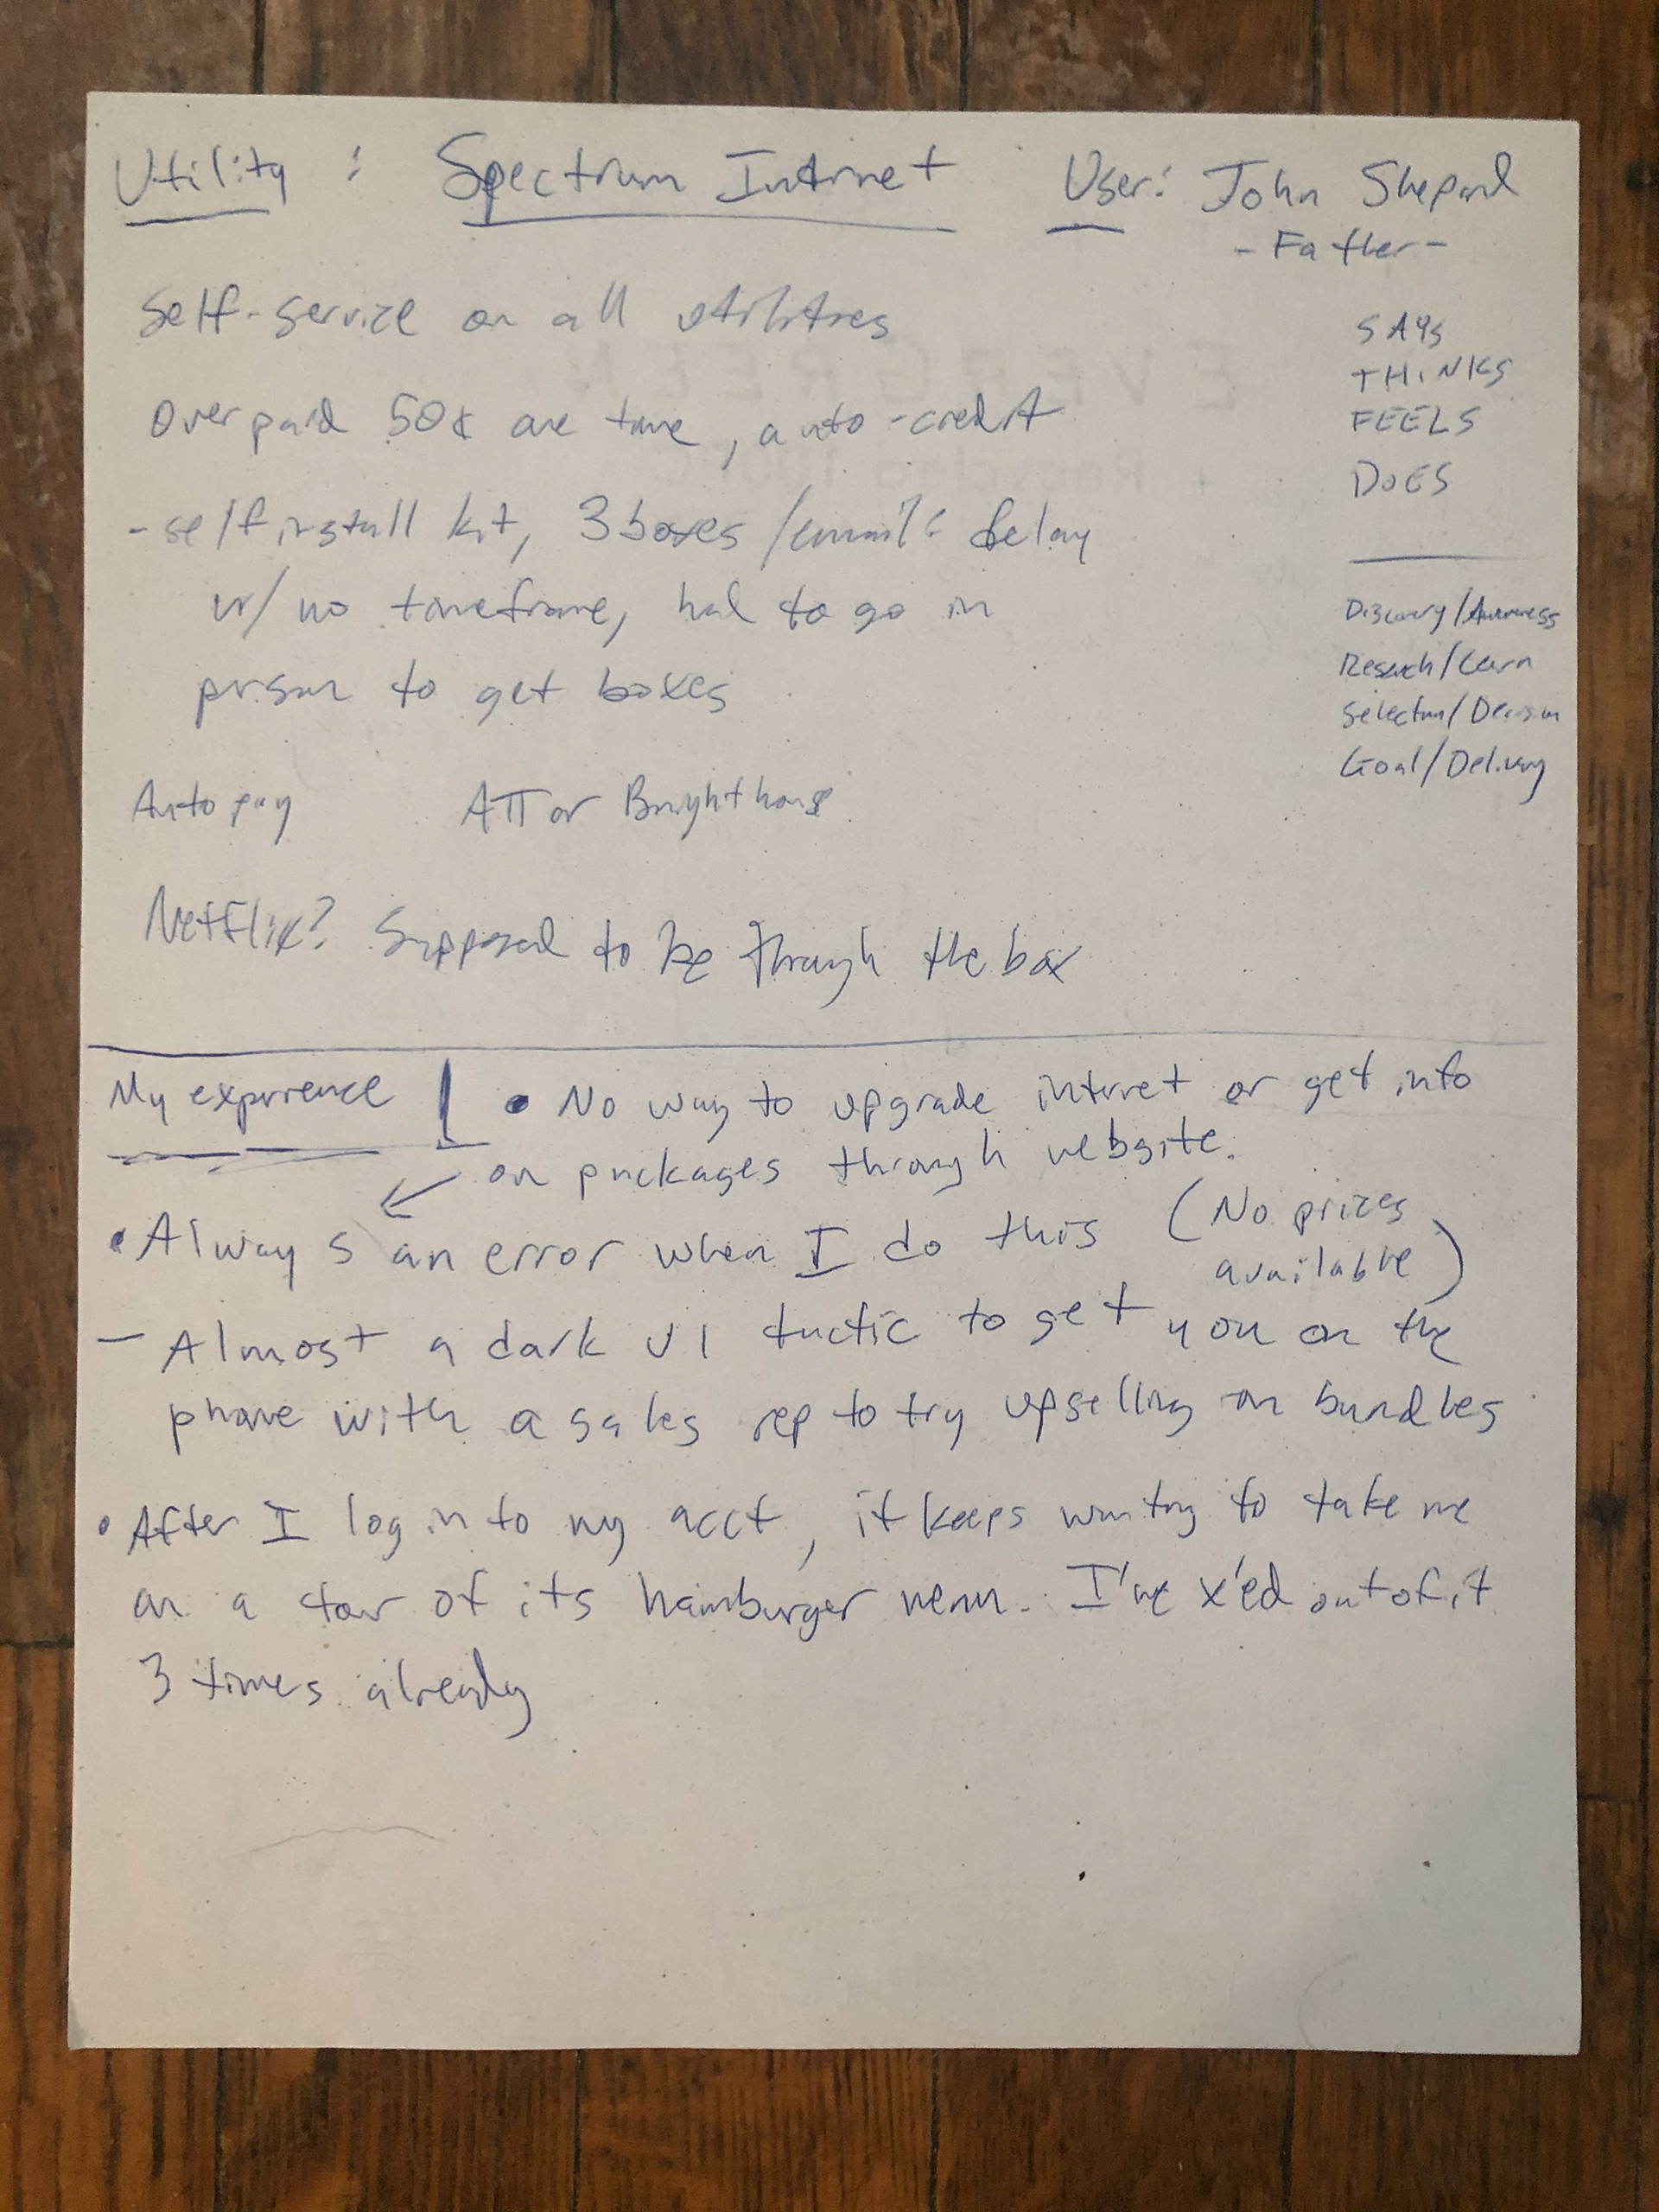 Utility : Spectrum Internet User: John Shepard
- Father -
Self-service on all utilities
Overpaid 50¢ one time, auto-credit
- self install kit, 3 boxes /email: delay
w/ no timeframe, had to go in
person to get boxes
Autopay ATT or Brighthouse
Netflix? Supposed to be through the box
SAYS
THINKS
FEELS
DOES
Discovery/Awareness
Research/Learn
Selection/Decision
Goal/Delivery
My experience • No way to upgrade internet or get info
on packages through website.
• Always an error when I do this (No prices
available)
— Almost a dark UI tactic to get you on the
phone with a sales rep to try upselling on bundles
• After I log in to my acct, it keeps wanting to take me
on a tour of its hamburger menu. I've x'ed out of it
3 times already